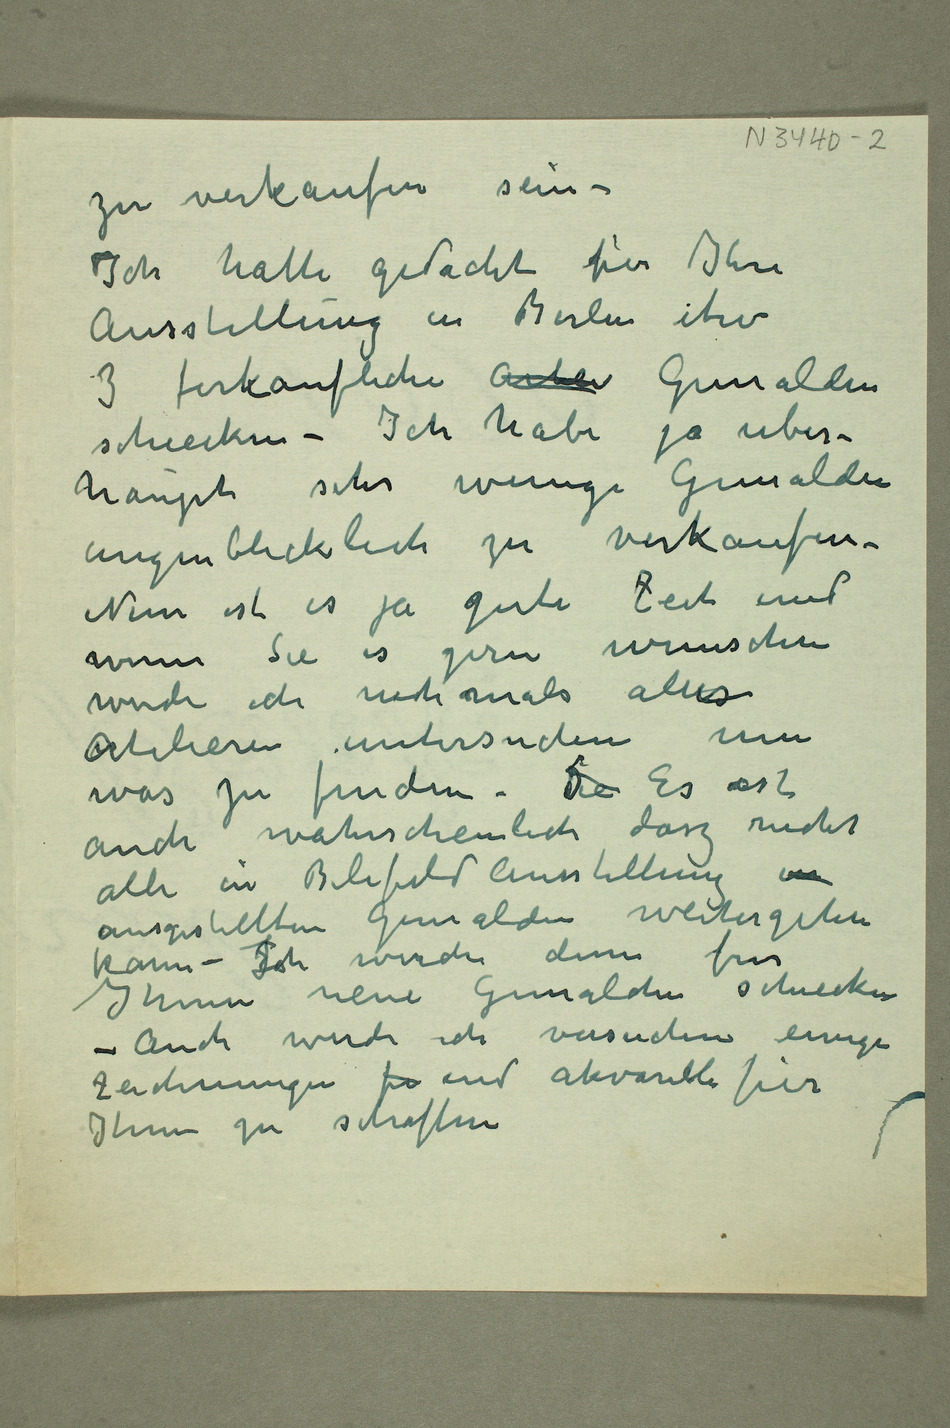 N 3440-2
zu verkaufen sein –
Ich hatte gedacht für Ihre
Ausstellung in Berlin etw
3 ferkaufliche Gemälden
schiecken – Ich habe ja uber-
haupt sehr wenige Gemälden
augenblicklich zu verkaufen –
Nun ist es ja gute Zeit und
wenn Sie es gern wunschen
werde ich nochmals alles
Atelieren untersuchen um
was zu finden – Sie Es ist
auch wahrscheinlich dasz nicht
alle in Bilefeld Ausstellung in
ausgestellten Gemälden weitergehen
kann – Ich werde denn fur
Ihnen neue Gemälden schiecken
– Auch werde ich versuchen einige
Zeichnungen fü und akvarelle für
Ihnen zu schaffen